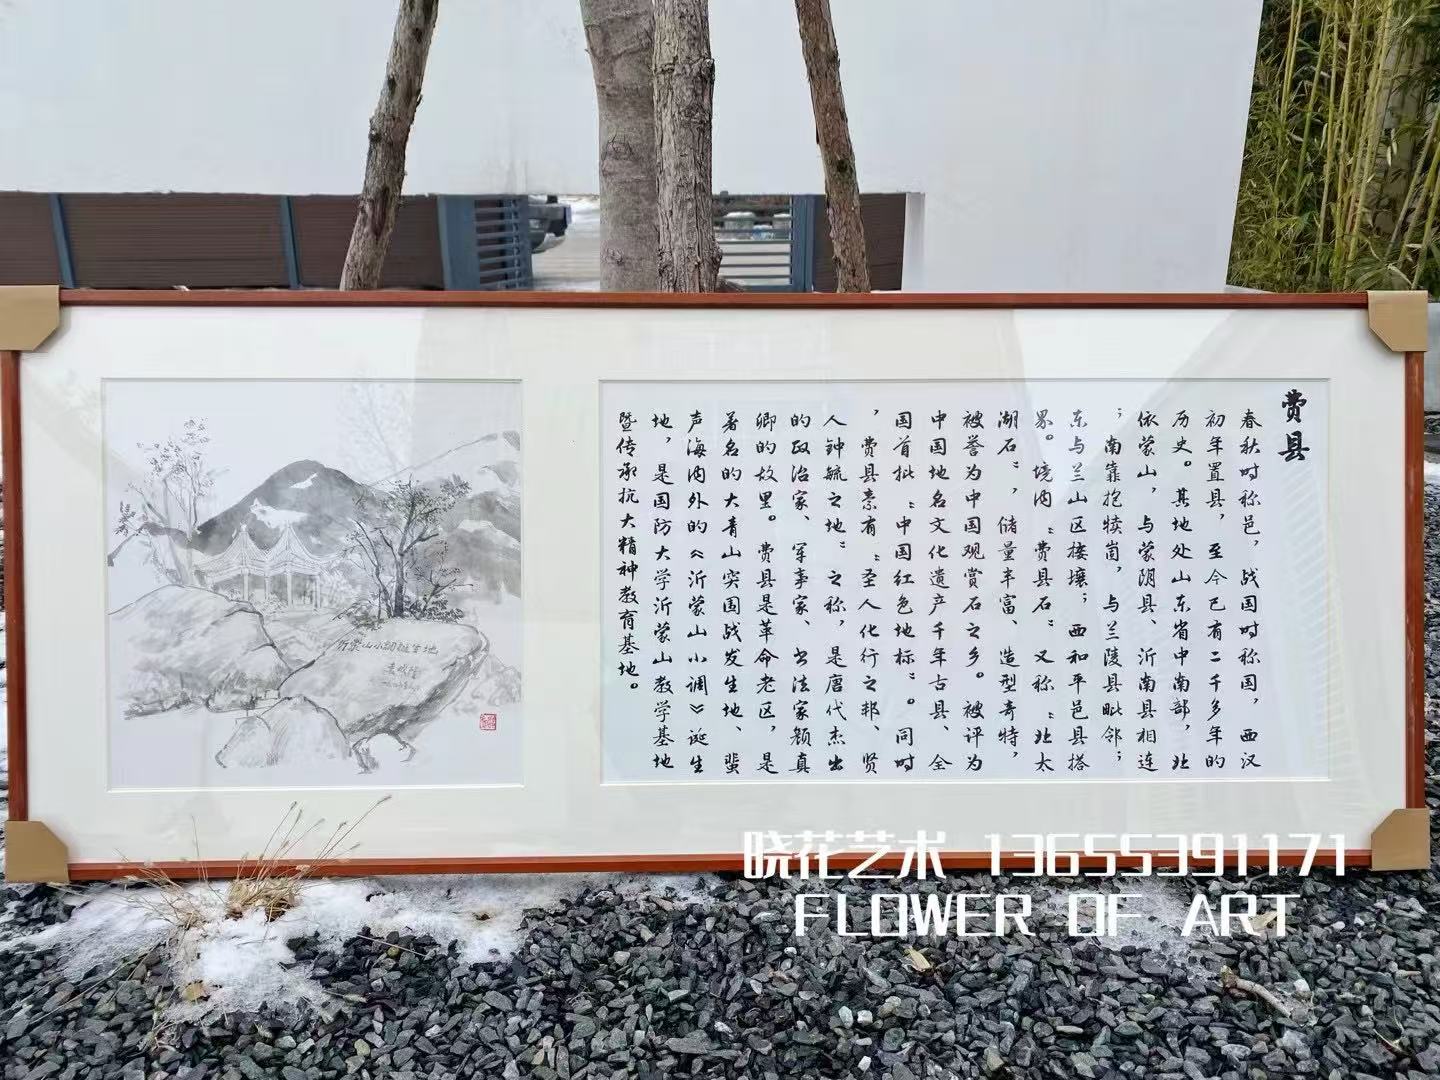 费县
春秋时称邑，战国时称国，西汉
初年置县，至今已有二千多年的
历史。其地处山东省中南部，北
依蒙山，与蒙阴县、沂南县相连
；南靠抱犊崮，与兰陵县毗邻；
东与兰山区接壤；西和平邑县搭
界。境内“费县石”又称“北太
湖石”，储量丰富、造型奇特，
被誉为中国观赏石之乡。被评为
中国地名文化遗产千年古县、全
国首批“中国红色地标”。同时
，费县素有“圣人化行之邦、贤
人钟毓之地”之称，是唐代杰出
的政治家、军事家、书法家颜真
卿的故里。费县是革命老区，是
著名的大青山突围战发生地、蜚
声海内外的《沂蒙山小调》诞生
地，是国防大学沂蒙山教学基地
暨传承抗大精神教育基地。
沂蒙山小调诞生地
晓花艺术 13655391171
FLOWER OF ART